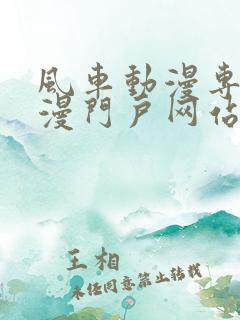 風車動漫專
漫門戶网站
王相
未经同意禁止转载